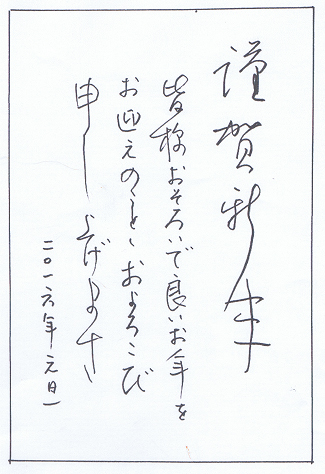 謹賀新年
皆様おそろいで良いお年を
お迎えのこと、およろこび
申し上げます、
二〇一六年元旦